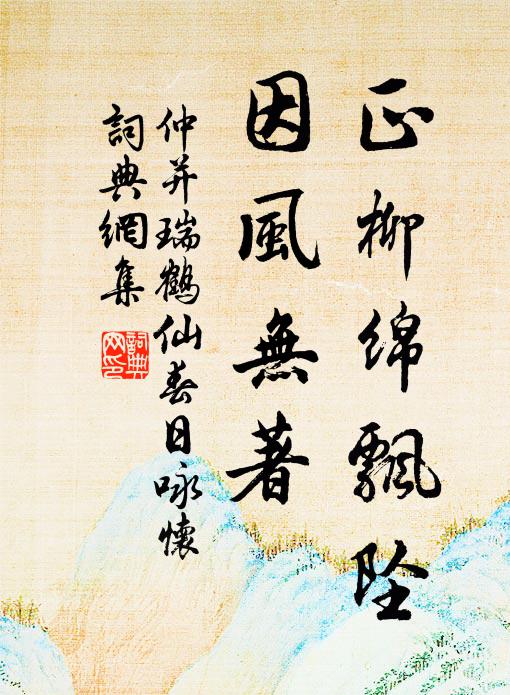 正柳綿飄墜
因風無著
仲并瑞鶴仙春日咏懷
詞典網集
詞典网印